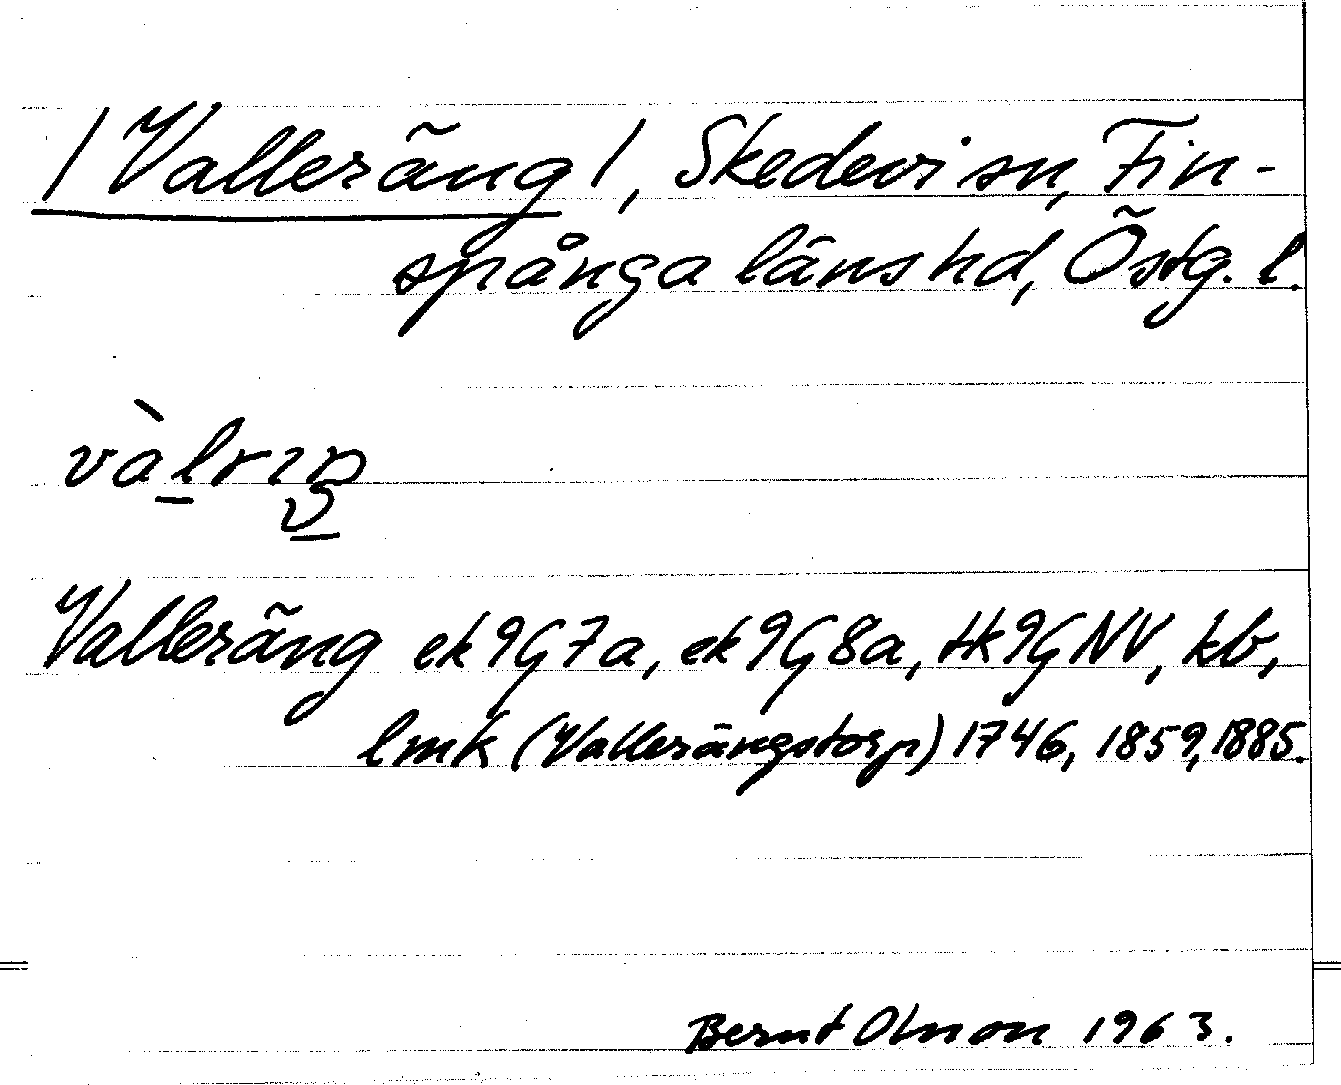 /Valleräng/, Skedevi sn, Fin-
spånga läns hd, Östg. l.
Valleräng ek 9G7a, ek 9G8a, Hk 9G NV, kb,
lmk (Vallerängstorp) 1746, 1859, 1885.
Bernt Olmon 1963.